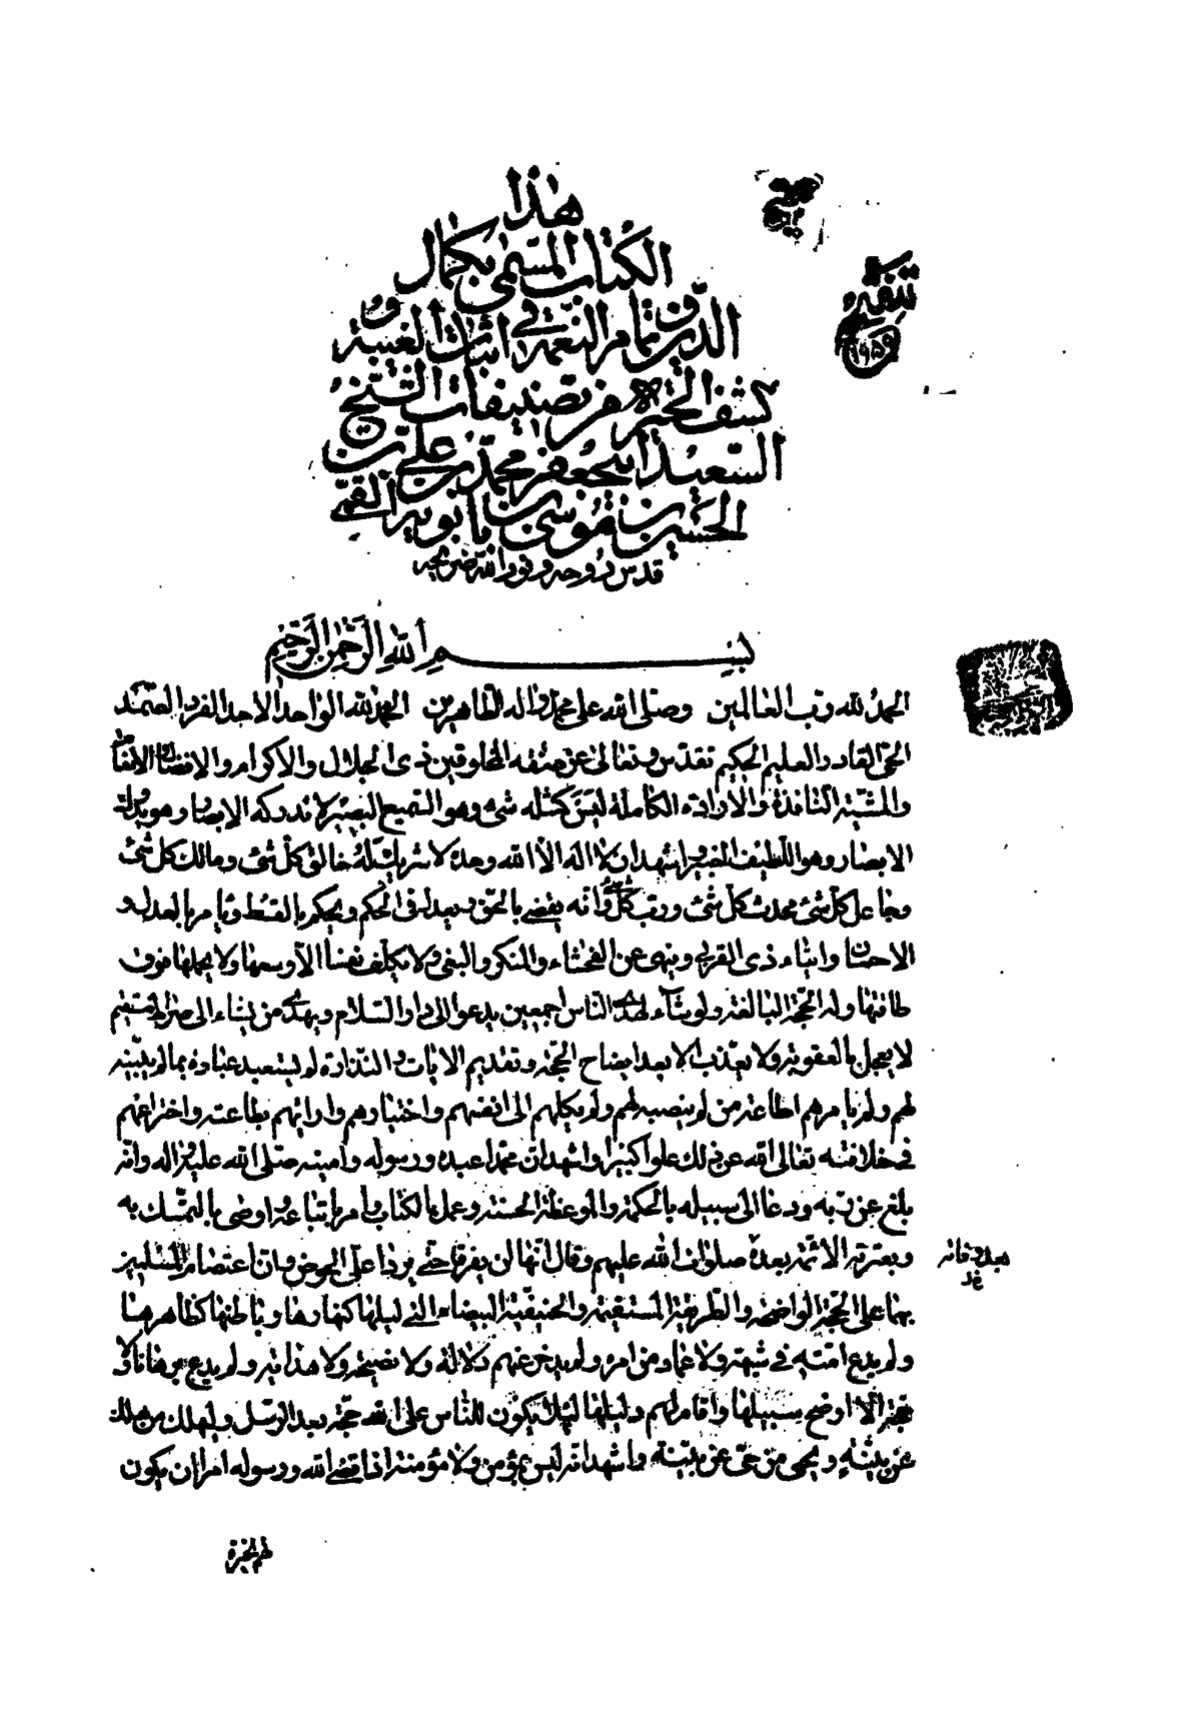 هذا
الكتاب المسمى بكمال
الدين وتمام النعمة في اثبات الغيبة و
كشف الحيرة من تصنيفات الشيخ
السعيد ابيجعفر محمد بن علي بن
الحسين بن موسى بن بابويه القمي
قدس روحه ونور الله ضريحه
بسم الله الرحمن الرحيم
الحمد لله رب العالمين وصلى الله على محمد واله الطاهرين الحمد لله الواحد الاحد الفرد الصمد
الحي القادر العليم الحكيم تقدس وتعالى عن صفة المخلوقين ذي الجلال والاكرام والافضال والانعام
والمشية النافذة والارادة الكاملة ليس كمثله شئ وهو السميع البصير لا تدركه الابصار وهو يدرك
الابصار وهو اللطيف الخبير اشهد ان لا اله الا الله وحده لا شريك له خالق كل شئ ومالك كل شئ
وجاعل كل شئ ومحدث كل شئ ورب كل شئ وانه يقضي بالحق ويعدل في الحكم ويحكم بالقسط ويامر بالعدل و
الاحسان وايتاء ذى القربى وينهى عن الفحشاء والمنكر والبغى ولا يكلف نفسا الا وسعها ولا يحملها فوق
طاقتها وله الحجة البالغة ولو شاء لهدى الناس اجمعين يدعو الى دار السلام ويهدى من يشاء الى صراط مستقيم
لا يعجل بالعقوبة ولا يعذب الا بعد ايضاح الحجة وتقديم الايات والنذارة لم يستعبد عباده بما لم يبينه
لهم ولم يامرهم اطاعة من لم ينصبه لهم ولم يكلهم الى انفسهم واختيارهم وارائهم بطاعته واختراعهم
في خلافته تعالى الله عن ذلك علوا كبيرا واشهد ان محمدا عبده ورسوله وامينه صلى الله عليه واله وانه
بلغ عن ربه ودعا الى سبيله بالحكمة والموعظة الحسنة وعمل بالكتاب وامر باتباعه واوصى بالتمسك به
وبعترته الائمة بعده صلوات الله عليهم وقال انهما لن يفرقا حتى يردا على الحوض وان اعتصام المسلمين
بهما على المحجة الواضحة والطريقة المستقيمة والحنيفية البيضاء التي ليلها كنهارها وباطنها كظاهرها
ولم يدع امته في شبهة ولا عماء من امره ولم يدخر عنهم دلالة ولا نصيحة ولا هداية ولم يدع برهانا ولا
حجة الا اوضح سبيلها واقام لهم دليلها لئلا يكون للناس على الله حجة بعد الرسل وليهلك من هلك
عن بينة ويحيى من حى عن بينة واشهد انه ليس بمؤمن ولا مؤمنة اذا قضى الله ورسوله امرا ان يكون
لهم الخيرة